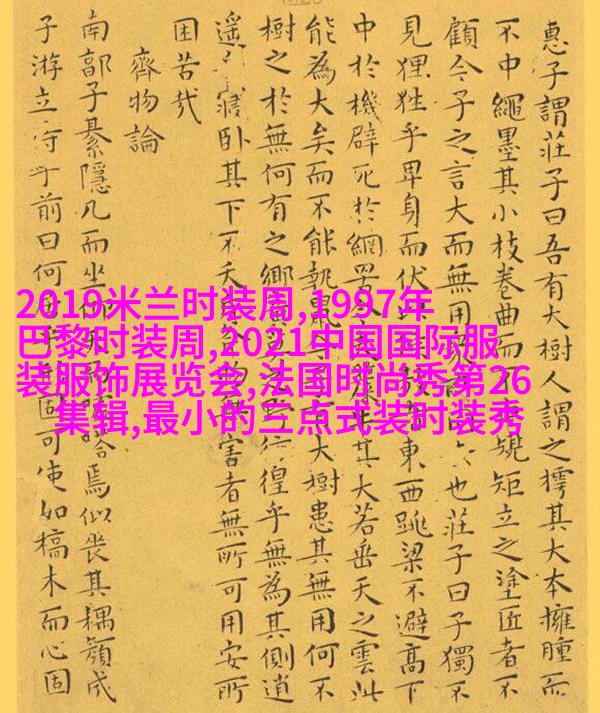 惠子謂莊子曰吾有大樹人謂之樗其大本擁腫而
不中繩墨其小枝卷曲而不規矩立之塗匠者不
顧今子之言大而無用也莊子曰子獨不
見狸狌乎卑身而伏東西跳梁不避高下
中於機辟死於網罟其大若垂天之雲此
能為大矣而不能執鼠大樹患其無用何不
樹之於無何有之鄉之野彷徨乎無為其側逍
遙寢臥其下不夭害者無所可用安所
困苦哉
齊物論
南郭子綦隱几而坐焉似喪其耦顏成
子游立侍乎前曰何居乎固可使如槁木而心固
2019米兰时装周,1997年
巴黎时装周,2021中国国际服
装服饰展览会,法国时尚秀第26
集辑,最小的三点式装时装秀